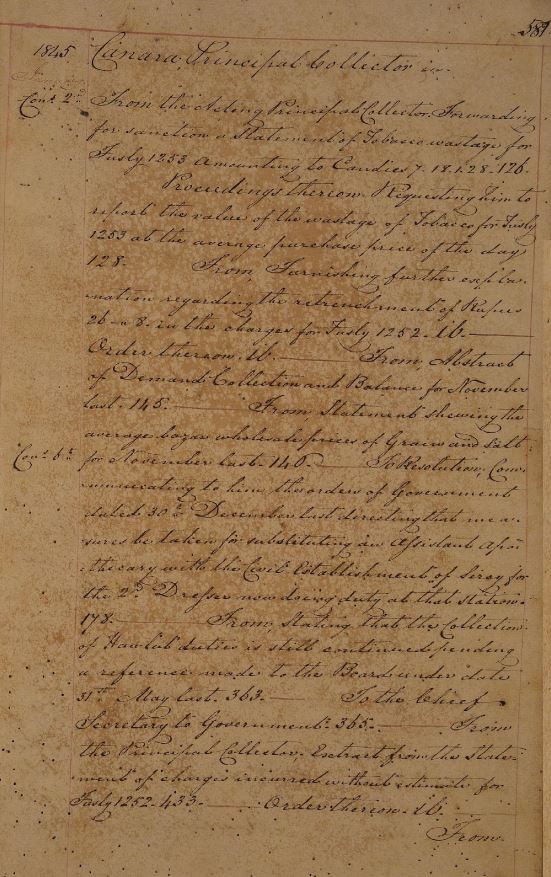 589
1845 Canara, Principal Collector in
Cons. 2nd From the Acting Principal Collector. Forwarding
for sanction a Statement of Tobacco wastage for
Fusly 1253 amounting to Candies 7. 18. 1. 28. 126.
Proceedings thereon. Requesting him to
report the value of the wastage of Tobacco for Fusly
1253 at the average purchase price of the day
128. From, Furnishing further expla-
nation regarding the retrenchment of Rupees
26 - " 8. in the charges for Fusly 1252. ib.
Order thereon. ib. From, Abstract
of Demand Collection and Balance for November
last. 145. From Statement shewing the
average bazar wholesale prices of Grain and Salt
Cons. 6th for November last. 140. To Resolution, Com-
municating to him the orders of Government
dated 30th December last directing that mea-
sures be taken for substituting an Assistant Apo-
thecary with the Civil Establishment of Sircy for
the 2d Dresser now doing duty at that station.
178. From, Stating that the Collection
of duties is still continued pending
a reference made to the Board under date
31st May last. 363. To the Chief
Secretary to Government. 365. From
the Principal Collector. Extract from the State-
ment of charges incurred without estimate for
Fusly 1252. 433. Order thereon. ib.
From.